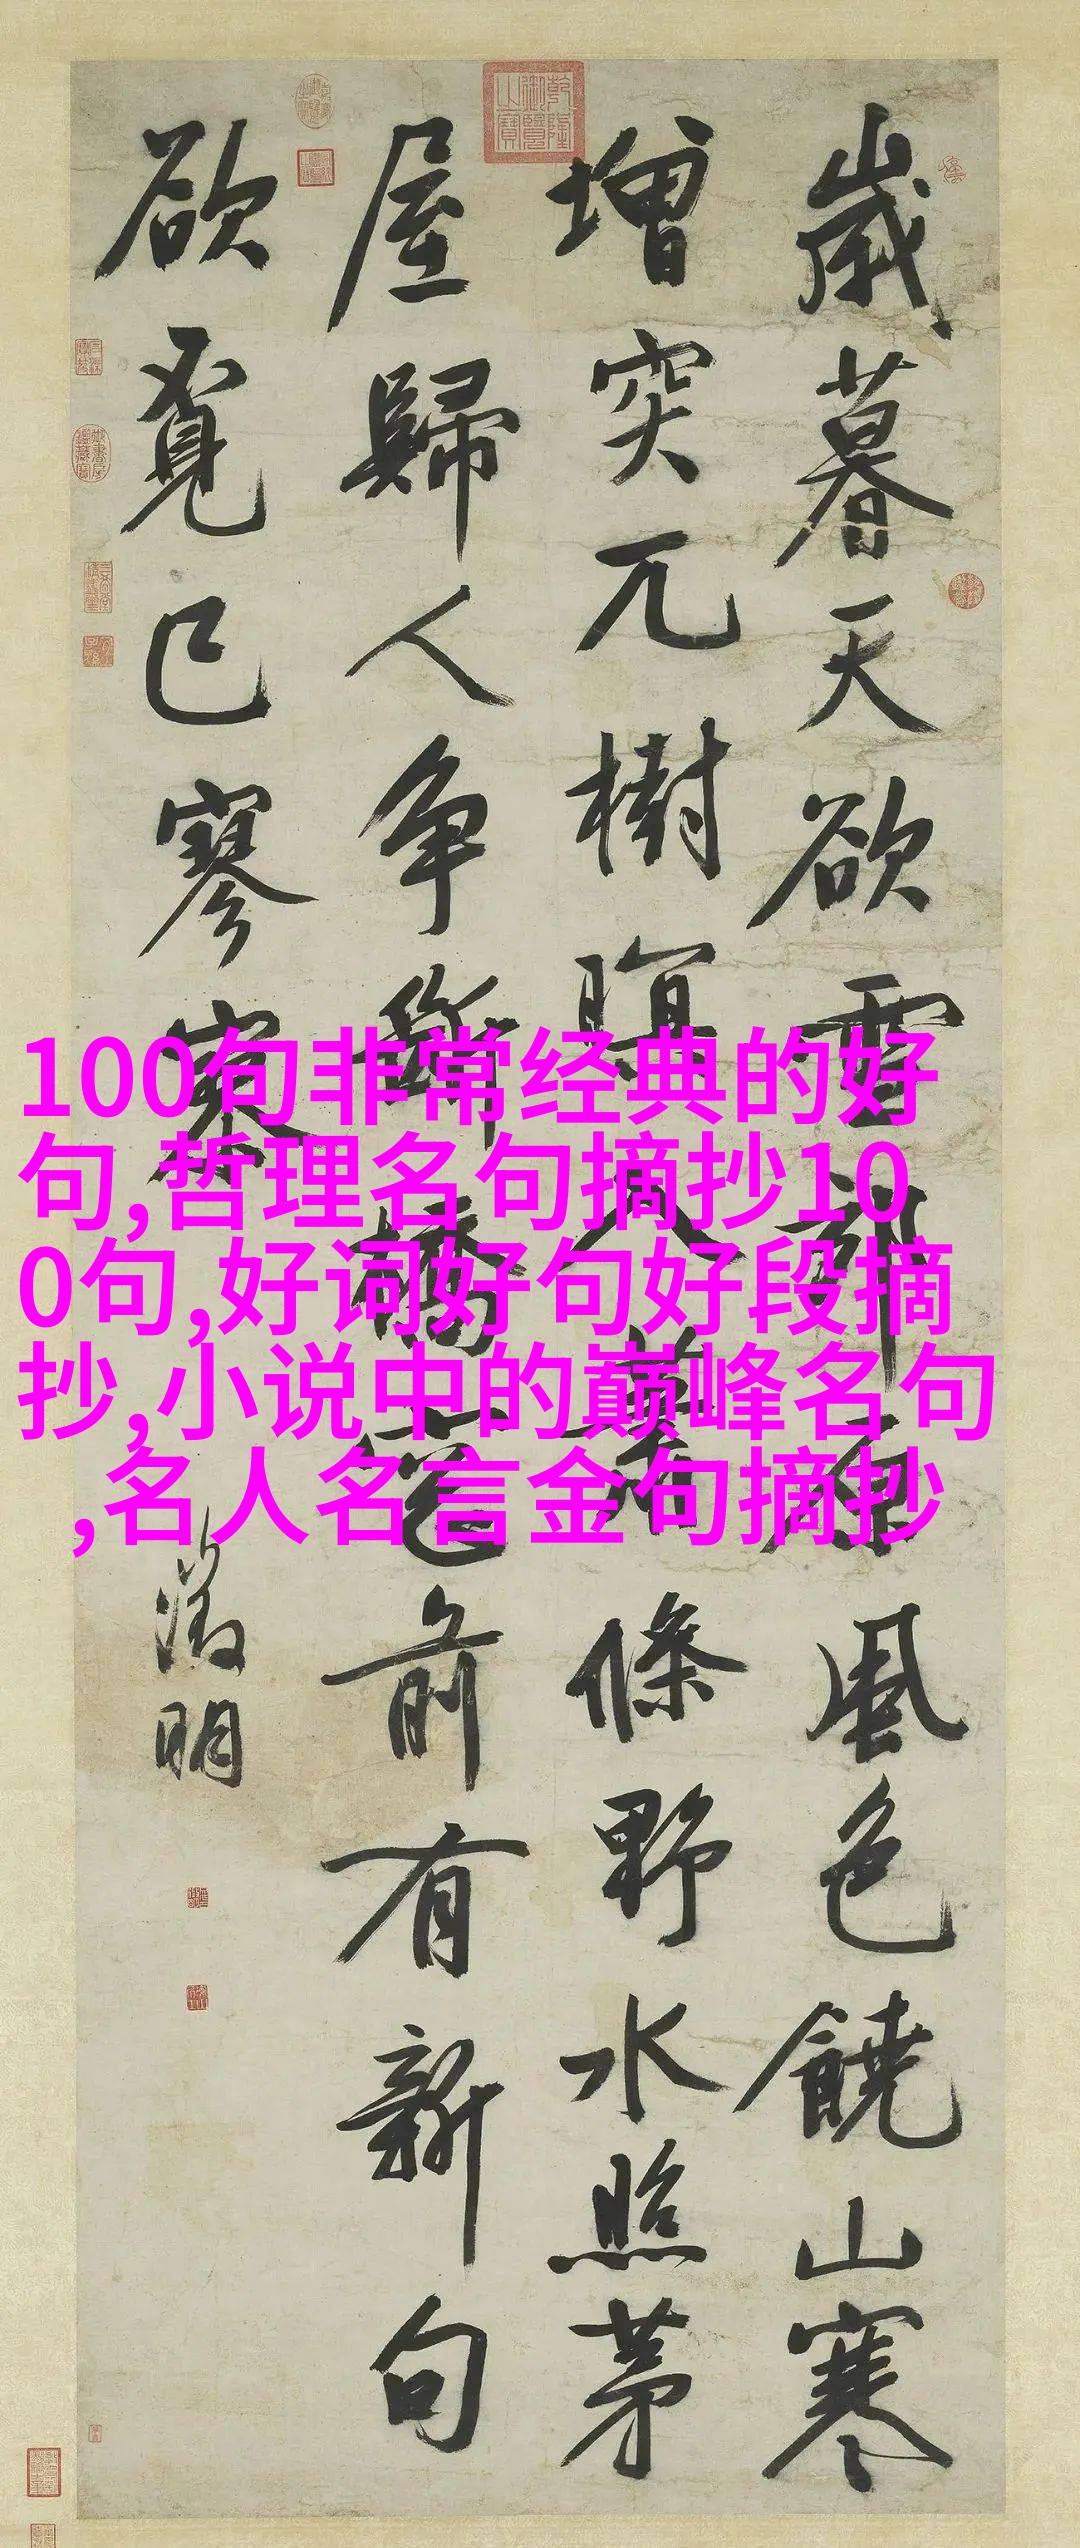 乾隆御覽之寶
歲暮天欲雪郊原風色饒山寒
增突兀樹暝入蕭條野水照茅
屋歸人爭斷橋前有新句
欲覓已寥寥
徵明
100句非常经典的好
句,哲理名句摘抄10
0句,好词好句好段摘
抄,小说中的巅峰名句
,名人名言金句摘抄